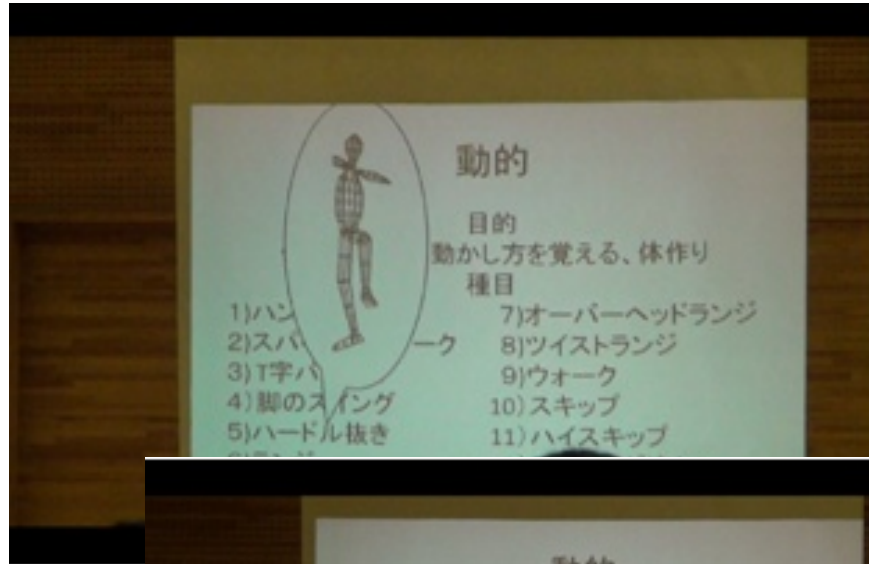 動的
目的
動かし方を覚える、体作り
種目
1)ハン
2)スパ ーク
3)T字バ
4)脚のスイング
5)ハードル抜き
7)オーバーヘッドランジ
8)ツイストランジ
9)ウォーク
10)スキップ
11)ハイスキップ
動的